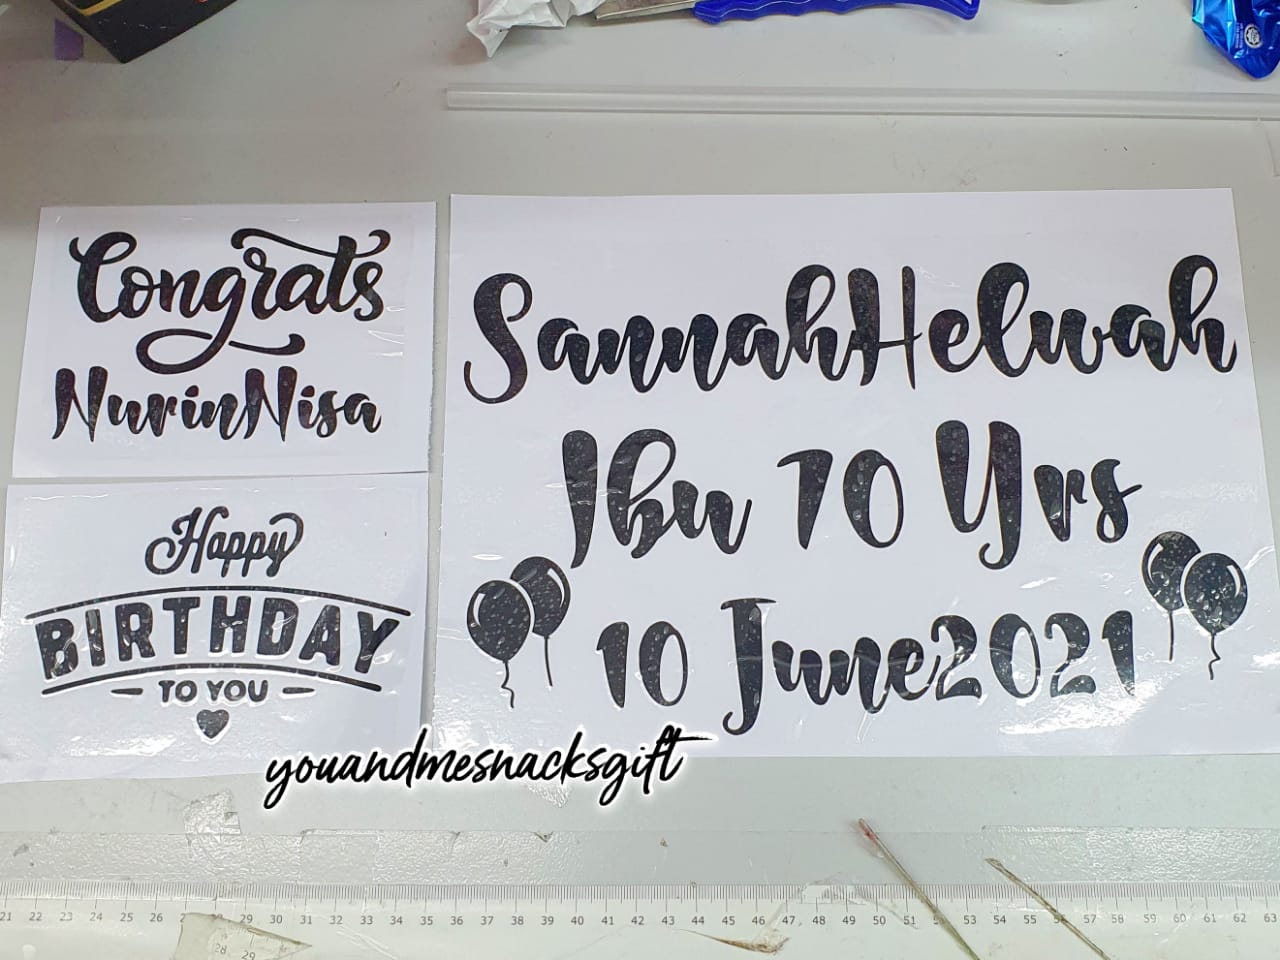 Congrats
NurinNisa
Happy
BIRTHDAY
TO YOU
SannahHelwah
Ibu 70 Yrs
10 June2021
youandmesnacksgift
21 22 23 24 25 26 27 28 29 30 31 32 33 34 35 36 37 38 39 40 41 42 43 44 45 46 47 48 49 50 51 53 54 55 56 57 58 59 60 61 62 63
28 29